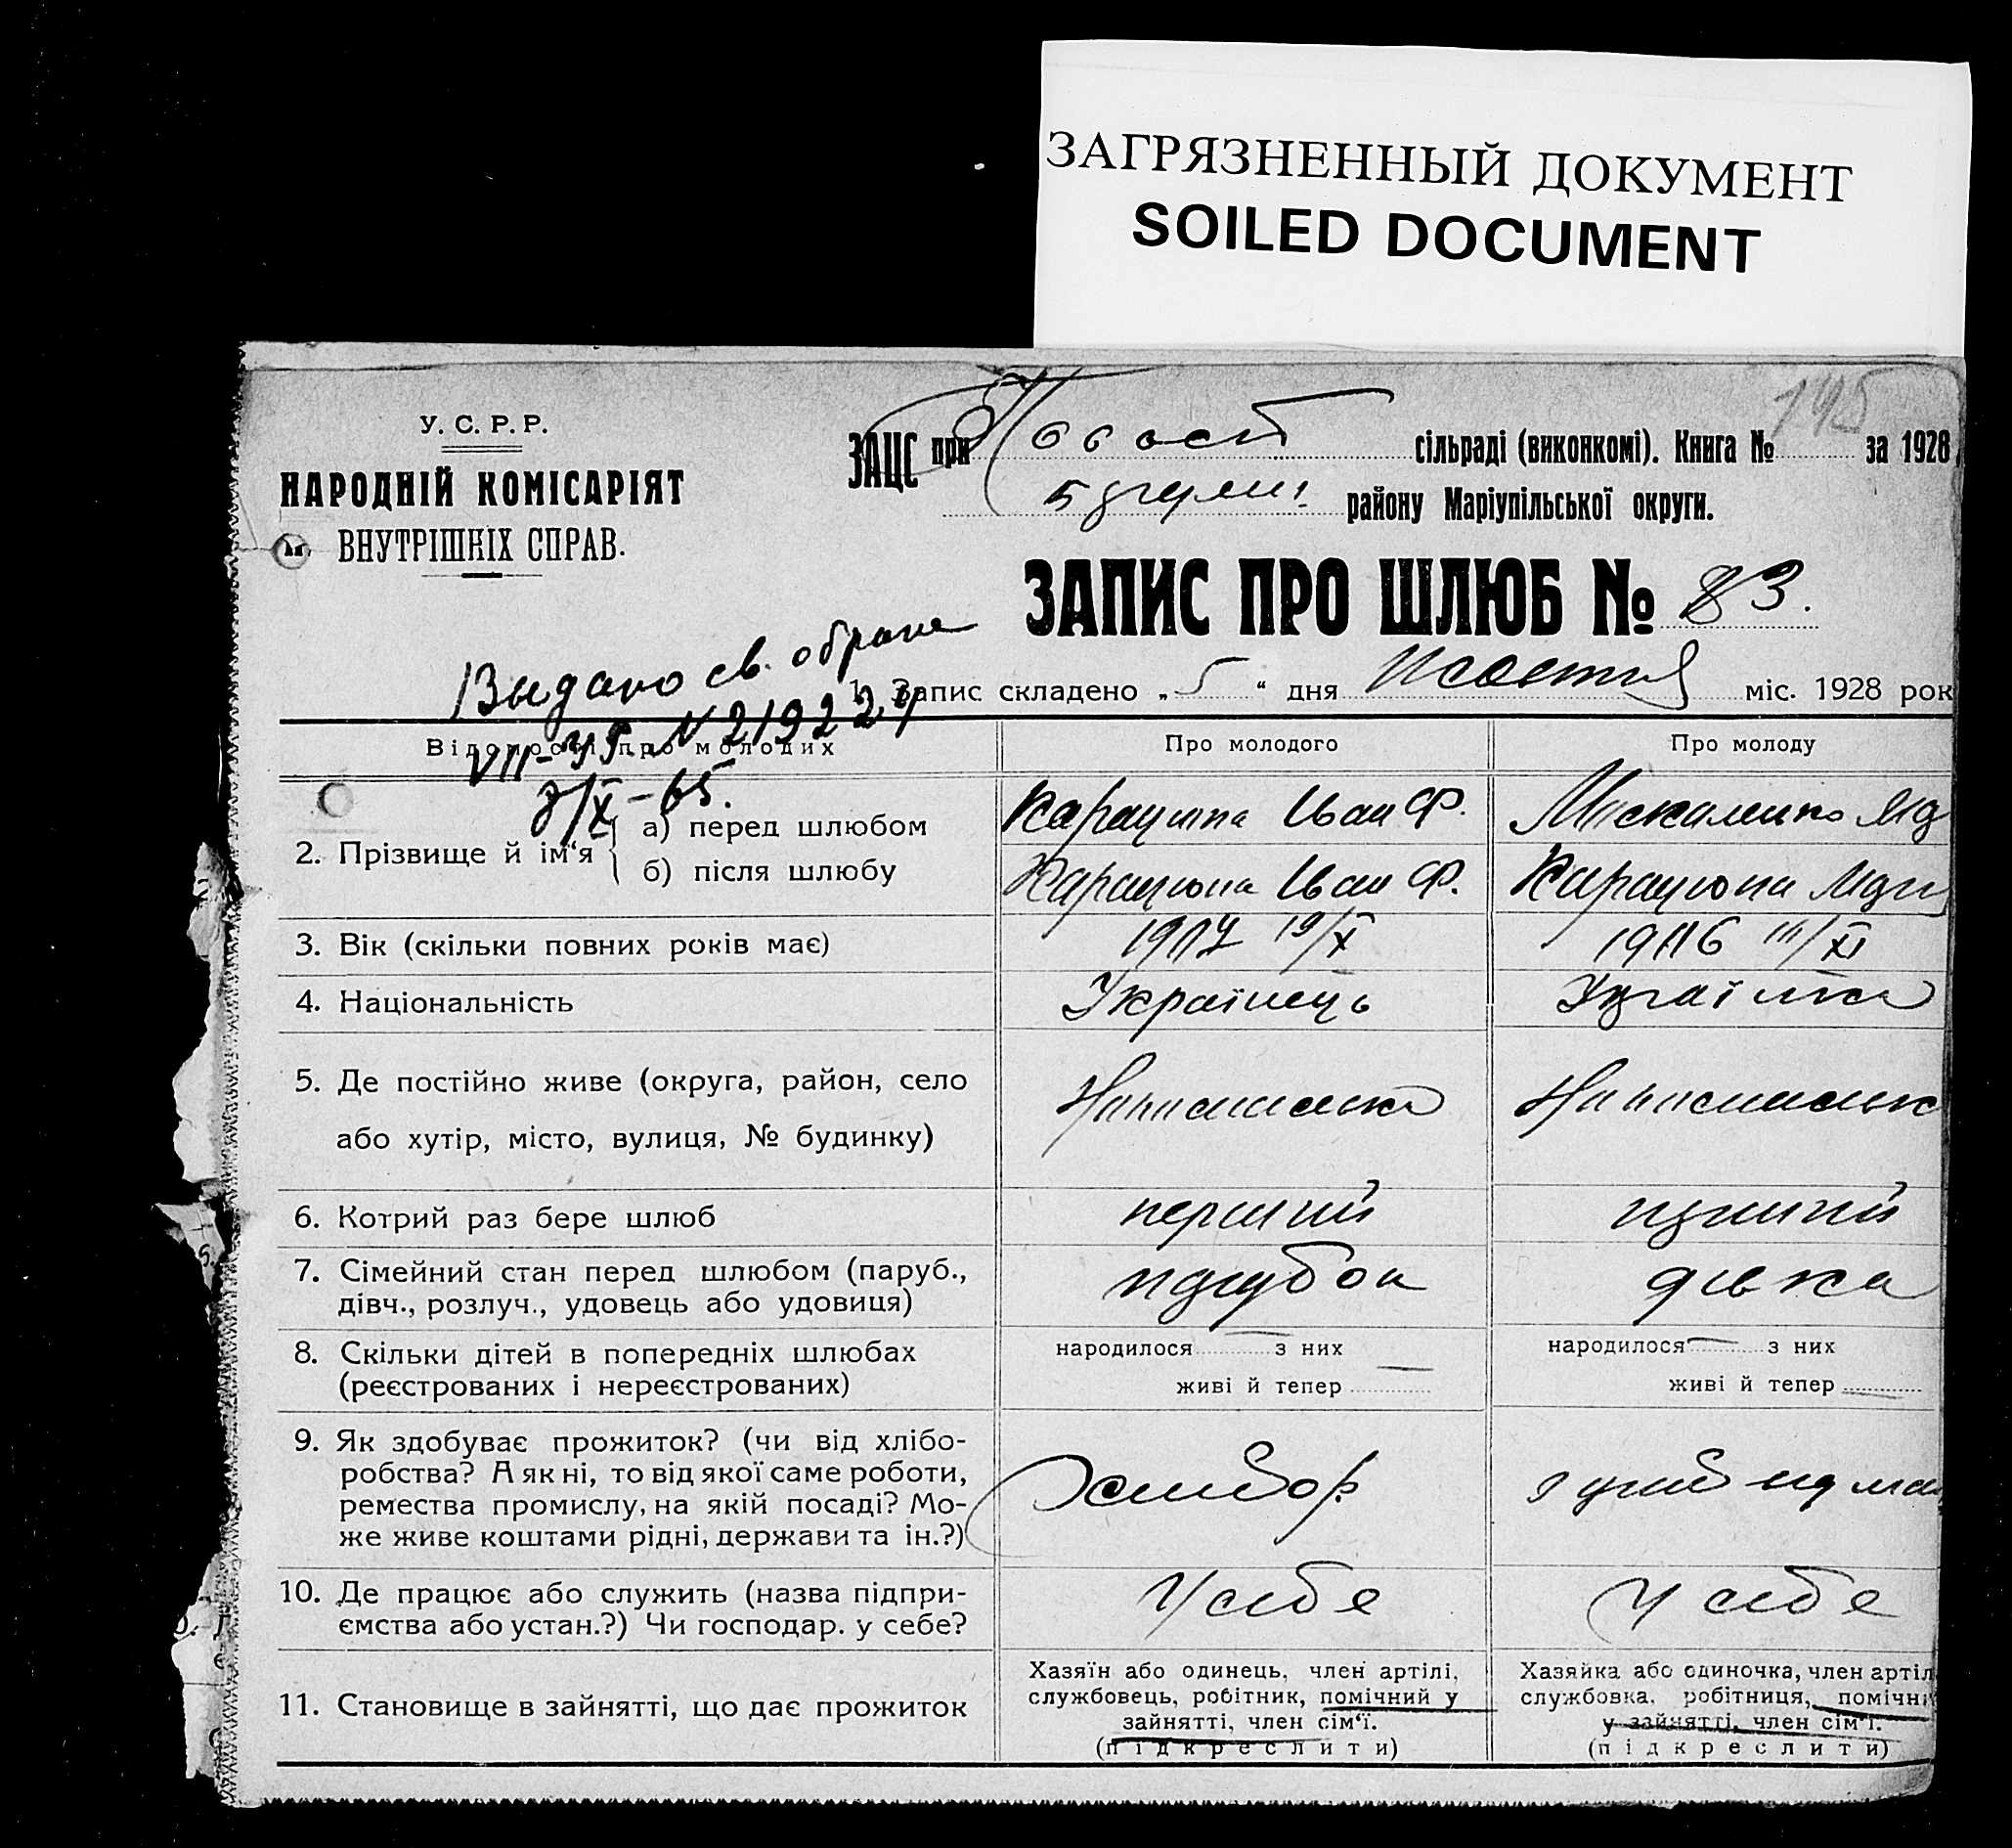 ЗАГРЯЗНЕННЫЙ ДОКУМЕНТ
SOILED DOCUMENT
145
У. С. Р. Р.
НАРОДНІЙ КОМІСАРІЯТ
ВНУТРІШНІХ СПРАВ.
ЗАЦС при сільраді (виконкомі). Книга № за 1928
району Маріупільської округи.
ЗАПИС ПРО ШЛЮБ № 83.
Выдано св. о браке
VII-УР N 219224
3/X-65.
1. Запис складено „5“ дня міс. 1928 рок
Відомості про молодих
Про молодого
Про молоду
2. Прізвище й ім‘я
а) перед шлюбом
Карацюпа Иван Ф.
Москаленко
б) після шлюбу
Карацюпа Иван Ф.
Карацюпа
3. Вік (скільки повних років має)
19/X
11/XI
4. Національність
Українець
Українка
5. Де постійно живе (округа, район, село
або хутір, місто, вулиця, № будинку)
6. Котрий раз бере шлюб
перший
перший
7. Сімейний стан перед шлюбом (паруб.,
дівч., розлуч., удовець або удовиця)
парубок
дівка
8. Скільки дітей в попередніх шлюбах
(реєстрованих і нереєстрованих)
народилося з них
живі й тепер
народилося з них
живі й тепер
9. Як здобуває прожиток? (чи від хлібо-
робства? А як ні, то від якої саме роботи,
ремества промислу, на якій посаді? Мо-
же живе коштами рідні, держави та ін.?)
Хлибор.
10. Де працює або служить (назва підпри-
ємства або устан.?) Чи господар. у себе?
У себе
У себе
11. Становище в зайнятті, що дає прожиток
Хазяїн або одинець, член артілі,
службовець, робітник, помічний у
зайнятті, член сім‘ї.
(підкреслити)
Хазяйка або одиночка, член артіл
службовка, робітниця, помічн
у зайнятті, член сім‘ї.
(підкреслити)